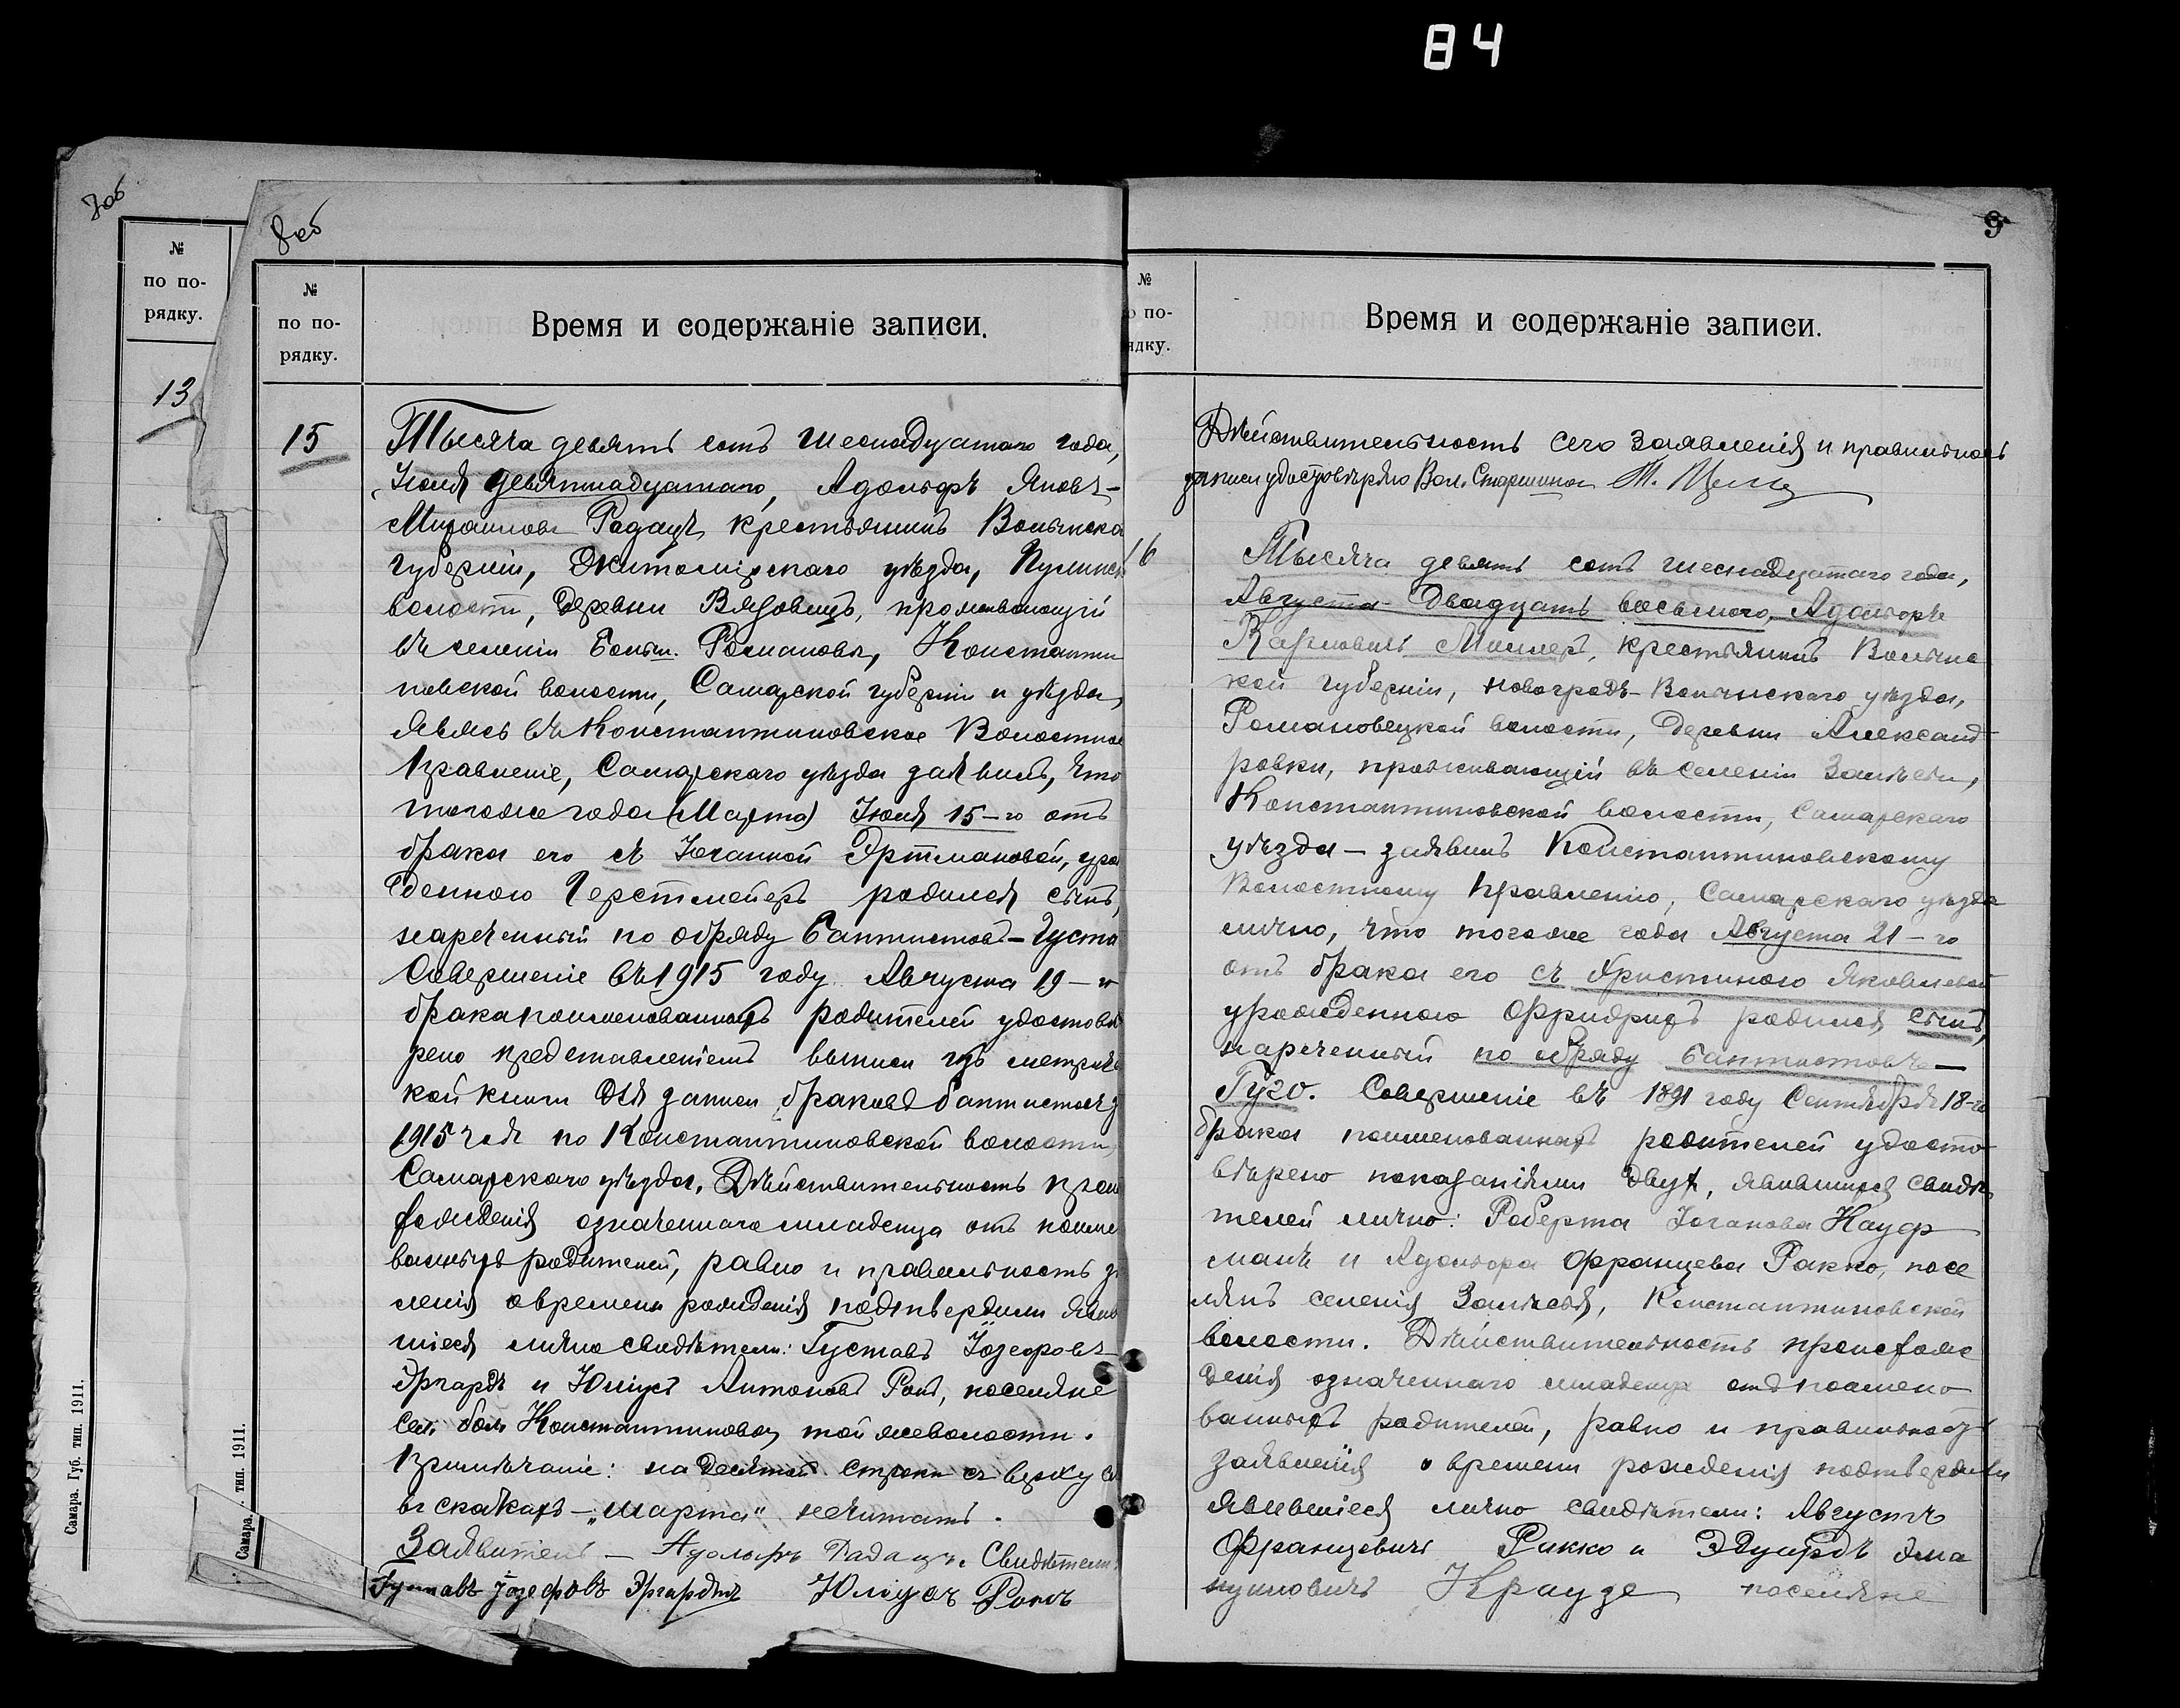 84
7об
№
по по-
рядку.
13
Самара. Губ. тип. 1911.
8об
№
по по-
рядку.
Время и содержаніе записи.
15
Тысяча девять сотъ шеснадцатаго года,
Іюля девятнадцатаго, Адольфъ Яковъ-
Михаиловъ Радацъ, крестьянинъ Волынско
губерніи, Житомірскаго уѣзда, Пулинск
волости, деревни Вязовецъ, проживающій
въ селеніи Больш. Романовы, Константи
новской волости, Самарской губерніи и уѣзда,
явясь въ Константиновское Волостное
Правленіе, Самарскаго уѣзда заявилъ, что
того же года (Марта) Іюля 15-го отъ
брака его съ Іоганной Эртмановой, уро
жденною Герстмейеръ родился сынъ,
нареченный по обряду баптистовъ - Густа
Совершеніе въ 1915 году Августа 19-го
брака поименованныхъ родителей удостовѣ
рено представленіемъ выписи изъ метриче
кой книги для записи браковъ баптистовъ з
1915 годъ по Константиновской волости,
Самарскаго уѣзда. Дѣйствительность прои
хожденія означеннаго младенца отъ поиме
ванныхъ родителей, равно и правильность за
ленія о времени рожденія подтвердили яви
шіеся лично свидѣтели: Густавъ Іозефовъ
Эргардъ и Юліусъ Антоновъ Рокъ, поселяне
сел. боль Константиновка, той же волости.
Примѣчаніе: на десятой строкѣ съ верху с
въ скобкахъ - „марта" не читать.
Заявитель - Адольфъ Радацъ. Свидѣтели:
Густавъ Іозефовъ Эргардтъ Юліусъ Рокъ
Самара. . тип. 1911.
9
№
о по-
ядку.
Время и содержаніе записи.
Дѣйствительность сего заявленія и правильность
записи удостовѣряю Вол. Старшина
16
Тысяча девять сотъ шеснадцатаго года,
Августа двадцать восьмого, Адольфъ
Карловичъ Миллеръ, крестьянинъ Волынс
кой губерніи, Новоградъ-Волынскаго уѣзда,
Романовецкой волости, деревни Александ
ровки, проживающій въ селеніи Залѣсьи,
Константиновской волости, Самарскаго
уѣзда - заявилъ Константиновскому
Волостному Правленію, Самарскаго уѣзда
лично, что того же года Августа 21-го
отъ брака его съ Христиною Яковлевой
урожденною Фридрихъ родился сынъ,
нареченный по обряду баптистовъ -
Гуго. Совершеніе въ 1891 году Сентября 18-го
брака поименованныхъ родителей удосто
вѣрено показаніями двухъ, явившихся свидѣ
телей лично: Роберта Іоганова Кауф
манъ и Адольфа Францева Ракко, посе
лянъ селенія Залѣсья, Константиновской
волости. Дѣйствительность происхож
денія означеннаго младенца отъ поимено
ванныхъ родителей, равно и правильность
заявленія о времени рожденія подтвердили
явившіеся лично свидѣтели: Августъ
Францевичъ Ракко и Эдуардъ Эма
нуиловичъ Краузе поселяне